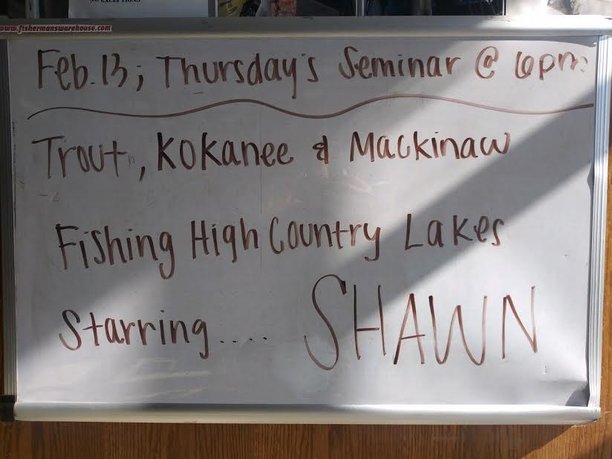 NO EXCEPTIONS
www.fishermanswarehouse.com
Feb.13; Thursday's Seminar @ 6pm
Trout, Kokanee & Mackinaw
Fishing High Country Lakes
Starring.... SHAWN